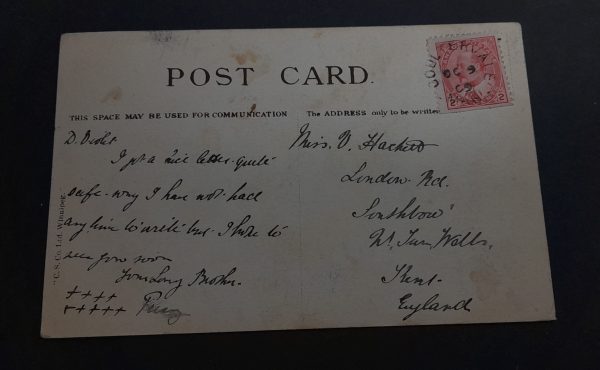 POST CARD.
THIS SPACE MAY BE USED FOR COMMUNICATION
The ADDRESS only to be written
D. Violet
I got a nice letter quite
safe - way I have not had
any time to write but I hope to
see you soon
Your Long Brother.
++++
+++++
Miss. V. Hackett
London Rd.
Southboro'
Nr. Tun Wells.
Kent.
England
"C. S. Co. Ltd. Winnipeg."
OC 9
09
2 2